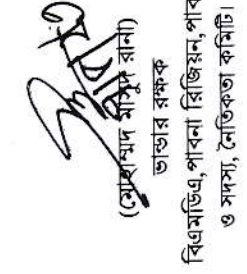 (মোহাম্মদ মাসুদ রানা)
ভান্ডার রক্ষক
বিএমডিএ, পাবনা রিজিয়ন, পাব
ও সদস্য, নৈতিকতা কমিটি।